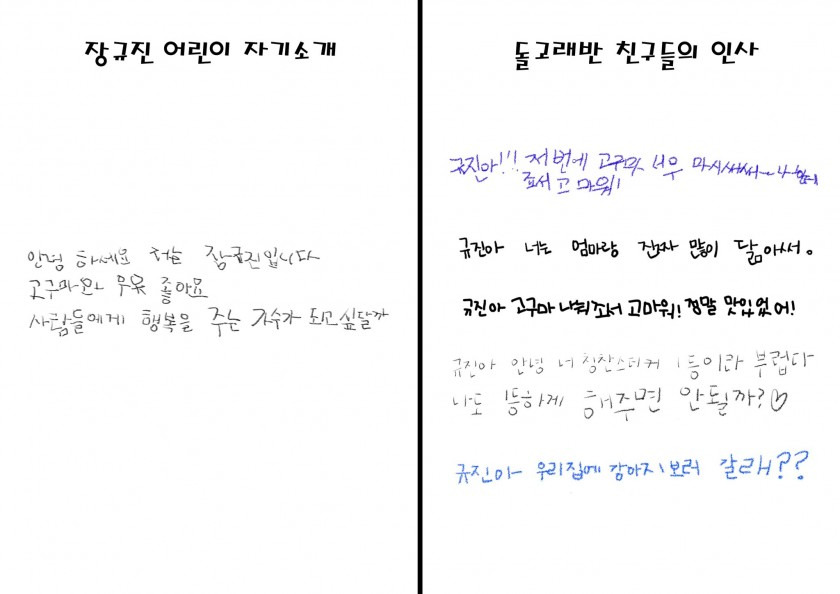 장규진 어린이 자기소개
안녕 하세요 저는 장규진입니다
고구마와 우유 좋아요
사람들에게 행복을 주는 가수가 되고싶달까
돌고래반 친구들의 인사
규진아!!! 저번에 고구마 너무 마시써써~나한테
죠서 고마워!
규진아 너는 엄마랑 진짜 많이 닮아써。
규진아 고구마 나눠조서 고마워! 정말 맛있었어!
규진아 안녕 너 칭찬스티커 1등이라 부럽다
나도 1등하게 해주면 안될까?♡
규진아 우리집에 강아지 보러 갈래??